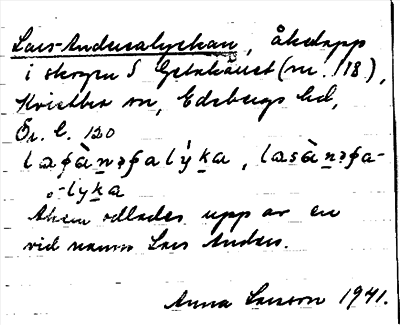 Lars-Andersalyckan, åkerlapp
i skogen S Getakärret (nr. 118),
Kvistbro sn, Edsbergs hd,
Ör. l. 120
Åkern odlades upp av en
vid namn Lars Anders.
Anna Larsson 1941.